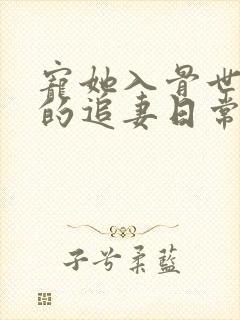 寵她入骨世
的追妻日常
子兮柔藍